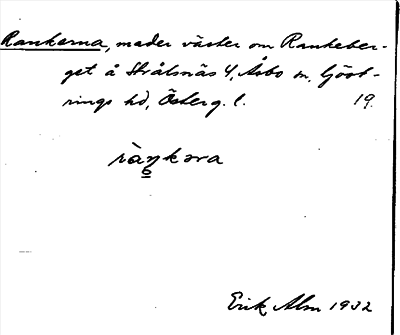 Rankerna, mader väster om Rankeber-
get å Strålsnäs 4, Åsbo sn, Göst-
rings hd, Österg. l. 19.
ràŋkəra
Erik Alm 1932